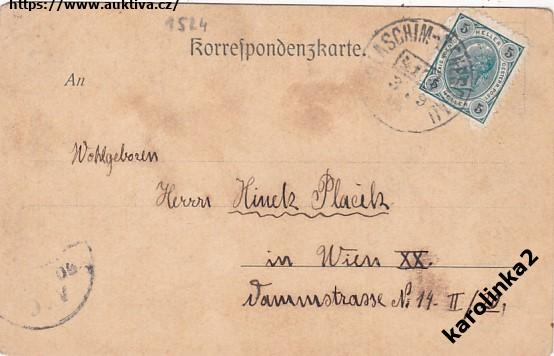 https://www.auktiva.cz/
1524
Korrespondenzkarte.
5 HELLER 5
5 HELLER 5
An
Wohlgeboren
Herrn Hinek Plaček
in Wien XX.
Dammstrasse № 14 - II/
karolinka2